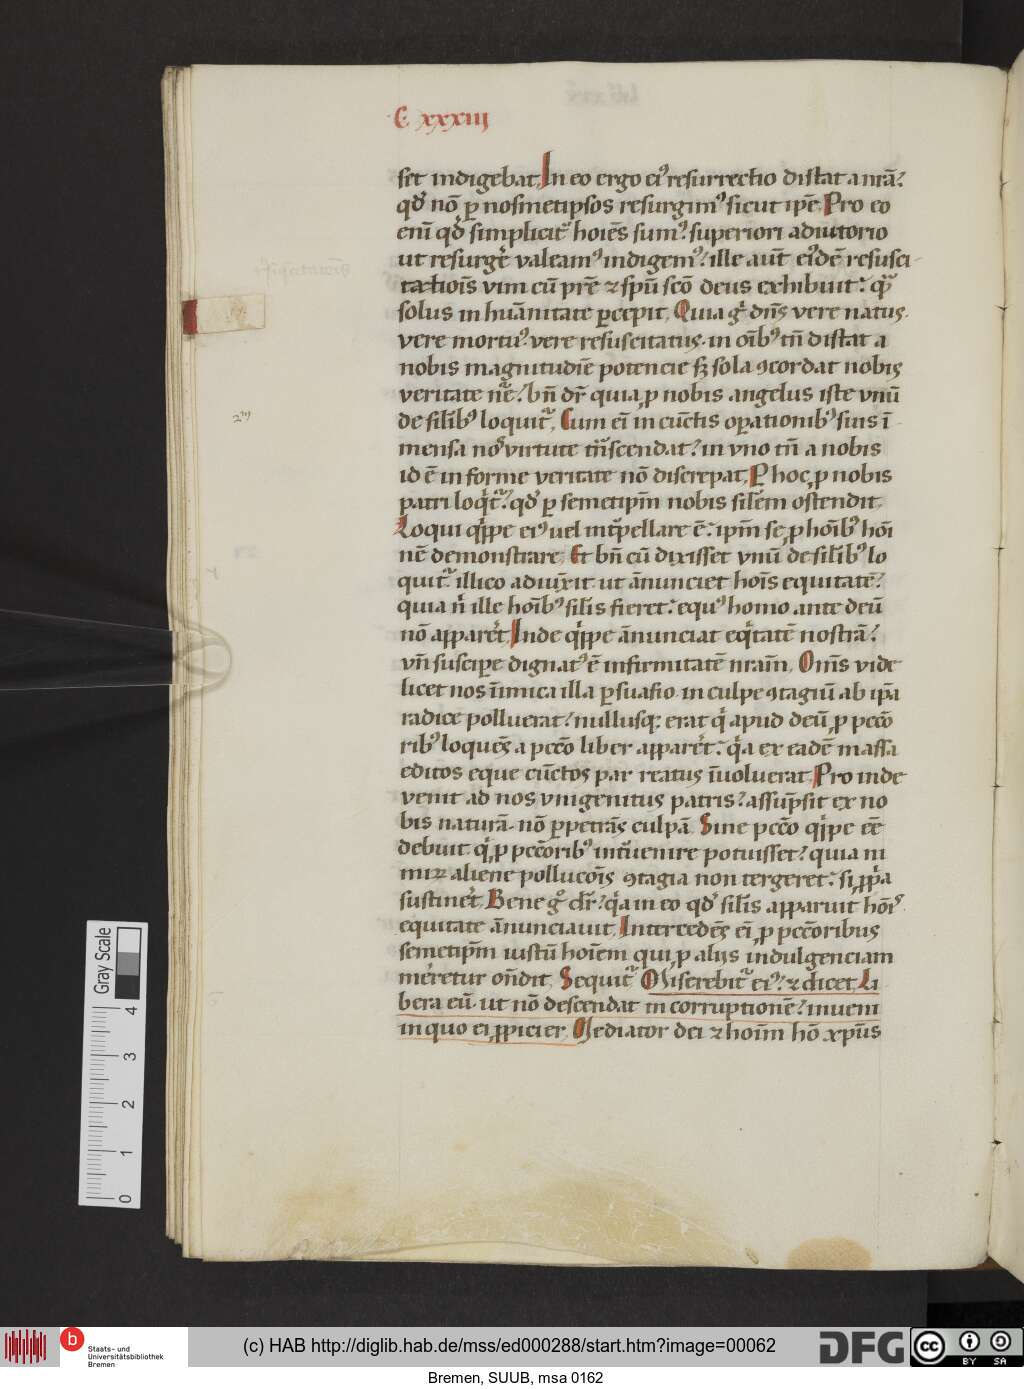 C xxxiij
set indigebat. In eo ergo ei9 resurrectio distat a nr̄a?
qd̓ nō ꝑ nosmetipsos resurgim9 sicut ip̄e. Pro eo
enī qd̓ simplicit̓ hoīes sum9? superiori adiutorio
ut resurgẽ valeam9 indigem9? ille aut̄ ei9dē resusci-
tatiōis vim cū pr̄e ⁊ sp̄u scō deus exhibuit: qm̃
solus in huānitate ꝑcepit. Quia g̊ dn̄s vere natus.
vere mortu9? vere resuscitatus. in oīb9 tn̄ distat a
nobis magnitudīe potencie sꝫ sola ꝯcordat nobis
veritate nr̄e? bn̄ dr̄ quia, ꝓ nobis angelus iste vnū
de silīb9 loquit᷑. Cum eī in cūctis oꝑationib9 suis ī
mensa nos virtute tn̄scendat? in vno tn̄ a nobis
id ē in forme veritate nō discrepat. Per hoc, ꝓ nobis
patri loqͥt᷑? qd̓ ꝑ semetipm̄ nobis silēm ostendit.
Loqui qͥppe ei9 uel int̓pellare ē: ipm̄ se, ꝓ hoīb9 hoī
nē demonstrare. Et bn̄ cū dixisset vnū de silīb9 lo
quit᷑ illico adiūxit. ut ānunciet hoīs equitatē?
quia ni ille hoīb9 silis fieret: equ9 homo ante deū
nō apparet. Inde qͥppe ānunciat eqͥtatē nostrā?
vn̄ suscipe dignat9 ē infirmitatē nr̄am. Om̄s vide
licet nos īimica illa ꝑsuasio. in culpe ꝯtagiū ab ip̄a
radice polluerat? nullusqꝫ erat qͥ apud deū, ꝓ pccō
rib9 loquēs a pccō liber apparet: qͥa ex eadē massa
editos eque cūctos par reatus īuoluerat. Pro inde
venit ad nos vnigenitus patris? assūpsit ex no
bis naturā. nō ꝑpetrās culpā. Sine pccō qͥppe eē
debuit. qͥ, ꝓ pccōrib9 int̓uenire potuisset? quia ni
miꝝ aliene pollucoīs ꝯtagia non tergeret: si, ꝓpͥa
sustinet. Bene g̊ dr̄? qͥa in eo qd̓ silīs apparuit hōis.
equitatē ānunciauit. Intercedēs eī, ꝓ pccōribus
semetipm̄ iustū hoīem qui, ꝓ alijs indulgenciam
mēretur on̄dit. Sequit᷑ Miserebit᷑ ei9? ⁊ dicet. Li
bera eū. ut nō descendat in corruptionē? inueni
in quo ei, ꝓpicier. Mediator dei ⁊ hoīm hō xp̄us
2m
Gray Scale
0 1 2 3 4
b
Staats- und
Universitätsbibliothek
Bremen
(c) HAB http://diglib.hab.de/mss/ed000288/start.htm?image=00062
DFG
cc
BY SA
Bremen, SUUB, msa 0162